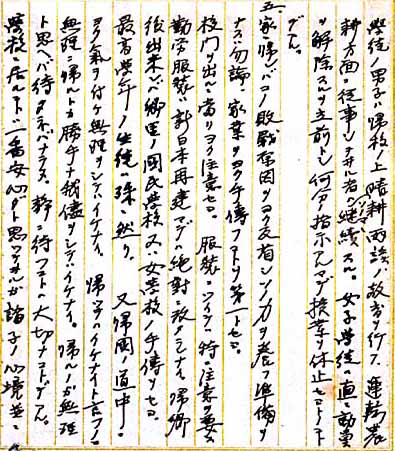 学徒ノ男子ハ帰校ノ上晴耕雨読ノ教育ヲ行フ 運動農
耕方面ニ従事シタル者ハ継続スル。女子学徒ハ直ニ動員
ヲ解除スルヲ立前トシ何分ノ指示アルマデ授業ヲ休止セヨトノコト
デアル。
五、家ニ帰レバコノ敗戦原因ヲヨク反省シソノ力ヲ養フ準備ヲ
ナス。勿論、家業ヲヨク手傳フコトヲ第一トセヨ。
校門ヲ出ルニ当リヨク注意セヨ。服装ニツイテハ特ニ注意ヲ要ス
勤労服装ハ新日本再建マデハ絶対ニ改メナイ 帰郷
後出来レバ郷里ノ國民学校又ハ女学校ノ手傳ヲセヨ。
最高学年ノ生徒ハ殊ニ然リ。又帰國ノ道中ハ
ヨク気ヲ付ケ無理ヲシテハイケナイ。帰ツテハイケナイト言フノニ
無理ニ帰ルトカ勝手ナ我儘ヲシテハイケナイ。帰ルノガ無理
ト思ヘバ待タネバナラヌ。静ニ待フコトハ大切ナコトデアル。
学校ニ居ルト一番安心ダト思ツテヰルガ諸子ノ心境並ニ